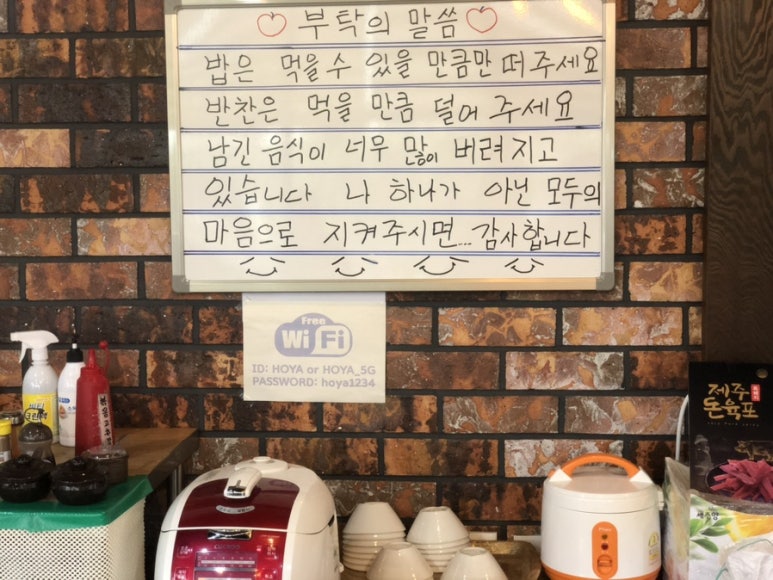 부탁의 말씀
밥은 먹을수 있을 만큼만 떠주세요
반찬은 먹을 만큼 덜어 주세요
남긴 음식이 너무 많이 버려지고
있습니다 나 하나가 아닌 모두의
마음으로 지켜주시면... 감사합니다
Free
WiFi
ID: HOYA or HOYA_5G
PASSWORD: hoya1234
제주
돈육포
CUCKOO